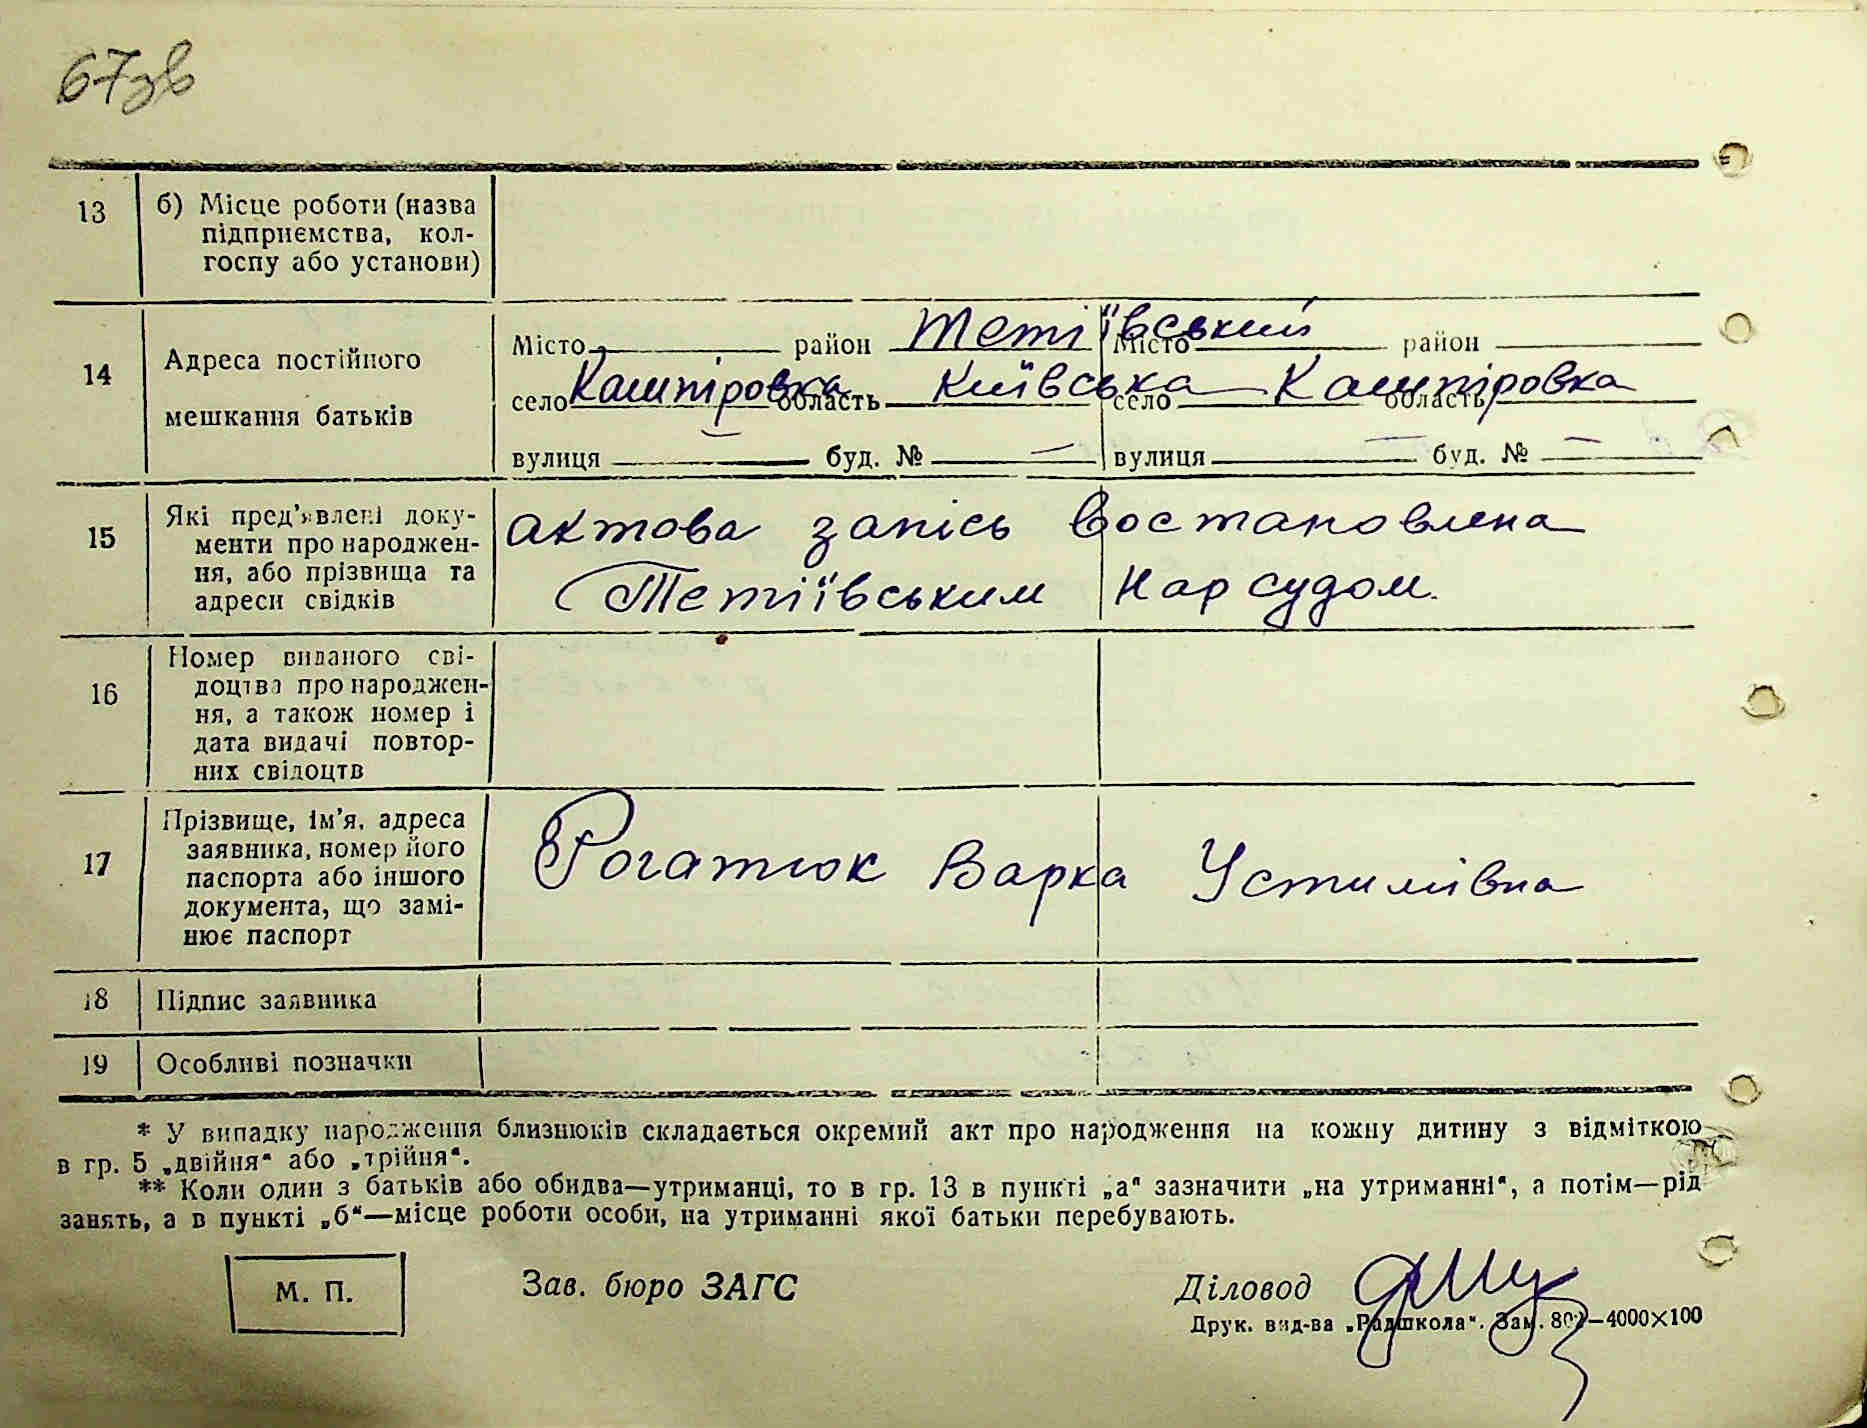 67зв
13 б) Місце роботи (назва
підприємства, кол-
госпу або установи)
14 Адреса постійного
мешкання батьків
Місто район Тетіївський Місто район
село Кашпіровка область Київська село Кашпіровка область
вулиця — буд. № — вулиця — буд. № —
15 Які пред'явлені доку-
менти про народжен-
ня, або прізвища та
адреси свідків
актова запісь востановлена
Тетіївським Нарсудом.
16 Номер виданого сві-
доцтва про народжен-
ня, а також номер і
дата видачі повтор-
них свідоцтв
17 Прізвище, ім'я, адреса
заявника, номер його
паспорта або іншого
документа, що замі-
нює паспорт
Рогатюк Варка Устимівна
18 Підпис заявника
19 Особливі позначки
* У випадку народження близнюків складається окремий акт про народження на кожну дитину з відміткою
в гр. 5 „двійня“ або „трійня“.
** Коли один з батьків або обидва—утриманці, то в гр. 13 в пункті „а“ зазначити „на утриманні“, а потім—рід
занять, а в пункті „б“—місце роботи особи, на утриманні якої батьки перебувають.
М. П.
Зав. бюро ЗАГС
Діловод
Друк. вид-ва „Радшкола“. Зам. —4000×100